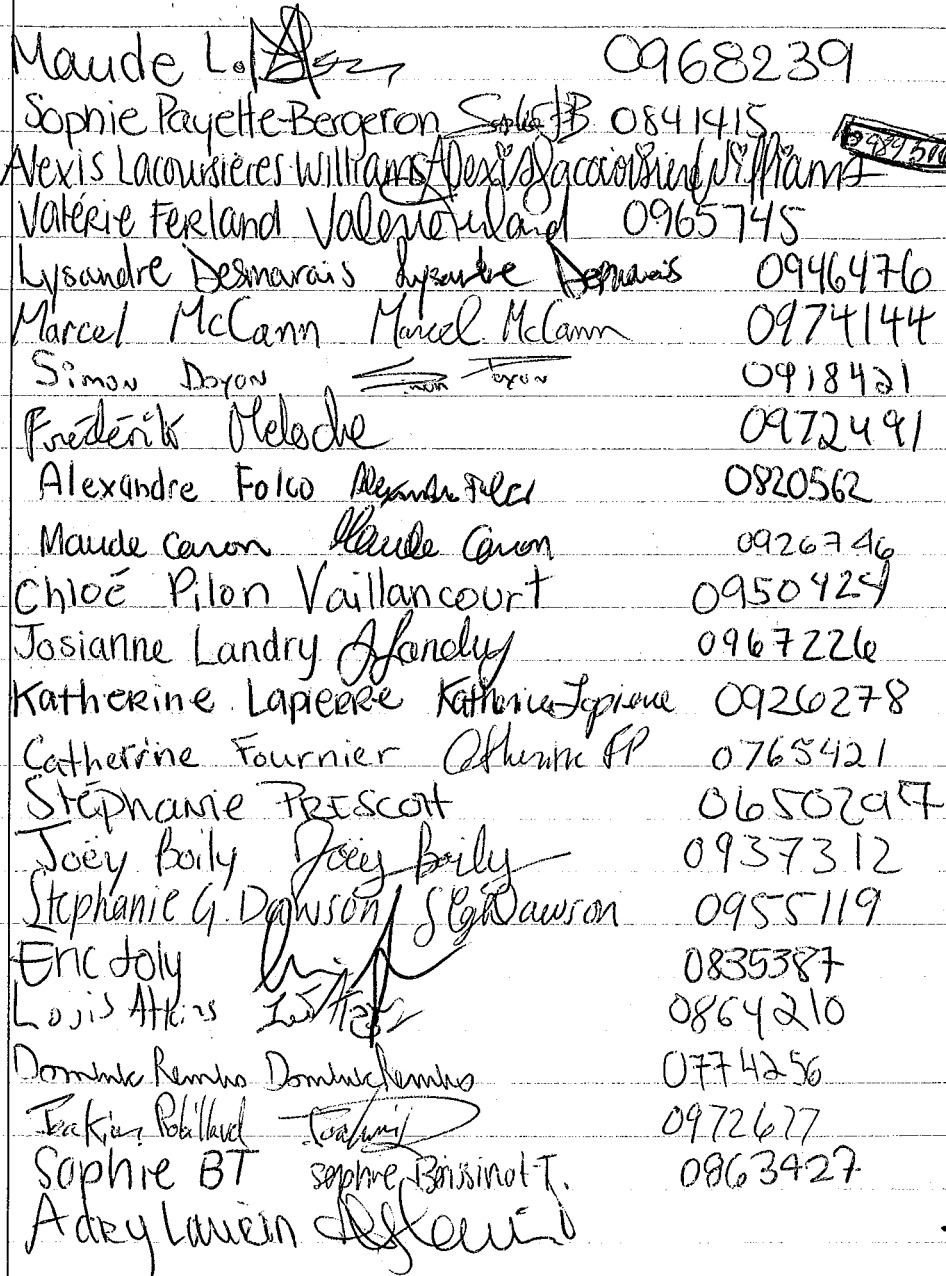 Maude L. 0968239
Sophie Payette-Bergeron Sophie PB 0841415
Alexis Lacoursières Williams Alexis Lacoursière Williams
Valérie Ferland Valerie Ferland 0965745
Lysandre Desmarais Lysandre Desmarais 0946476
Marcel McCann Marcel McCann 0974144
Simon Doyon Simon Doyon 0918421
Frédérik Meloche 0972491
Alexandre Folco Alexandre Folco 0820562
Maude Caron Maude Caron 0926746
Chloé Pilon Vaillancourt
Josianne Landry JLandry 0967226
Katherine Lapierre Katherine Lapierre 0926278
Catherine Fournier Catherine FP 0765421
Stéphanie PRESCOTT
Joëy Boily Joëy Boily 0937312
Stephanie G. Dawson Dawson 0955119
Eric Joly 0835387
Louis Atkins 0864210
Dominic 0774256
Joakim Robillard Joakim 0972677
Sophie BT Sophie Boissinot-T. 0863427